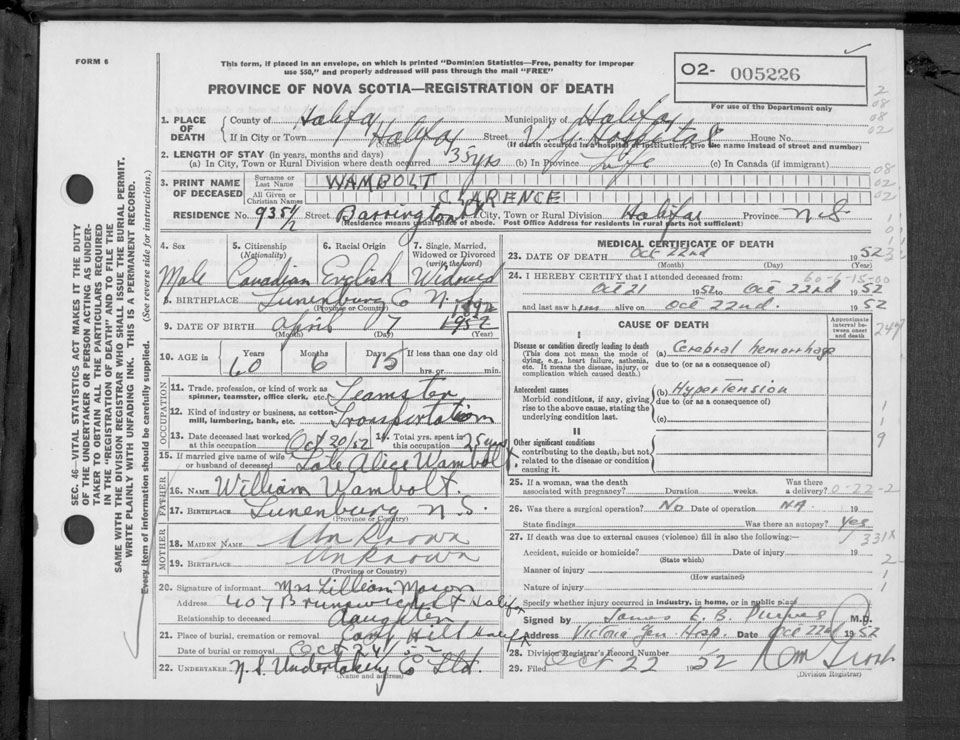 FORM 6
This form, if placed in an envelope, on which is printed "Dominion Statistics—Free, penalty for improper
use $50," and properly addressed will pass through the mail "FREE"
O2- 005226
For use of the Department only
PROVINCE OF NOVA SCOTIA—REGISTRATION OF DEATH
1. PLACE OF DEATH County of Halifax Municipality of Halifax
If in City or Town Halifax Street V.G. Hospital House No.
(Name) (If death occurred in a hospital or institution, give the name instead of street and number)
2. LENGTH OF STAY (in years, months and days)
(a) In City, Town or Rural Division where death occurred 35 yrs (b) In Province Life (c) In Canada (if immigrant)
3. PRINT NAME OF DECEASED Surname or Last Name WAMBOLT
All Given or Christian Names CLARENCE
RESIDENCE No. 935 1/2 Street Barrington St City, Town or Rural Division Halifax Province N.S.
(Residence means usual place of abode. Post Office Address for residents in rural parts not sufficient)
4. Sex 5. Citizenship (Nationality) 6. Racial Origin 7. Single, Married, Widowed or Divorced (write the word)
Male Canadian English Widowed
8. BIRTHPLACE Lunenburg Co N.S.
(Province or Country)
9. DATE OF BIRTH April 7 1952 1892
(Month) (Day) (Year)
10. AGE in Years Months Days If less than one day old
60 6 15 hrs. or min.
OCCUPATION
11. Trade, profession, or kind of work as spinner, teamster, office clerk, etc. Teamster
12. Kind of industry or business, as cotton-mill, lumbering, bank, etc. Transportation
13. Date deceased last worked at this occupation Oct 20/52 14. Total yrs. spent in this occupation 25 years
15. If married give name of wife or husband of deceased Late Alice Wambolt
FATHER
16. NAME William Wambolt.
17. BIRTHPLACE Lunenburg N.S.
(Province or Country)
MOTHER
18. MAIDEN NAME Unknown
19. BIRTHPLACE Unknown
(Province or Country)
20. Signature of informant Mrs Lillian Mason
Address 407 Brunswick St Halifax
Relationship to deceased daughter
21. Place of burial, cremation or removal Camp Hill Halifax
Date of burial or removal Oct 24/52
22. UNDERTAKER N.S. Undertaking Co Ltd.
(Name and address)
MEDICAL CERTIFICATE OF DEATH
23. DATE OF DEATH Oct 22nd 1952
(Month) (Day) (Year)
24. I HEREBY CERTIFY that I attended deceased from:
60-6-15-00
Oct 21 1952 to Oct 22nd 1952
and last saw h alive on Oct 22nd. 1952
CAUSE OF DEATH
Approximate interval between onset and death
I
Disease or condition directly leading to death (a) Cerebral hemorrhage
(This does not mean the mode of dying, e.g., heart failure, asthenia, etc. It means the disease, injury, or complication which caused death.) due to (or as a consequence of)
Antecedent causes (b) Hypertension
Morbid conditions, if any, giving rise to the above cause, stating the underlying condition last. due to (or as a consequence of)
(c)
II
Other significant conditions
contributing to the death, but not related to the disease or condition causing it.
25. If a woman, was the death associated with pregnancy? Duration weeks. Was there a delivery?
26. Was there a surgical operation? No Date of operation NA. 19
State findings Was there an autopsy? Yes
27. If death was due to external causes (violence) fill in also the following:— 331X
Accident, suicide or homicide? Date of injury 19
(State which)
Manner of injury
(How sustained)
Nature of injury
Specify whether injury occurred in industry, in home, or in public place
Signed by James E. B. Purves M.D.
Address Victoria Gen. Hosp. Date Oct 22nd 1952
28. Division Registrar's Record Number
29. Filed Oct 22 1952
(Division Registrar)
SEC. 46—VITAL STATISTICS ACT MAKES IT THE DUTY
OF THE UNDERTAKER OR PERSON ACTING AS UNDER-
TAKER TO OBTAIN ALL THE PARTICULARS REQUIRED
IN THE "REGISTRATION OF DEATH" AND TO FILE THE
SAME WITH THE DIVISION REGISTRAR WHO SHALL ISSUE THE BURIAL PERMIT.
WRITE PLAINLY WITH UNFADING INK. THIS IS A PERMANENT RECORD.
Every item of information should be carefully supplied. (See reverse side for instructions.)